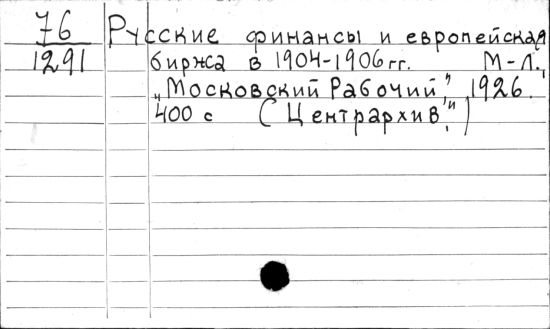 76
1291
Русские финансы и европейская
биржа в 1904-1906 гг. М-Л.,
„Московский Рабочий", 1926.
400 с (Центрархив".")